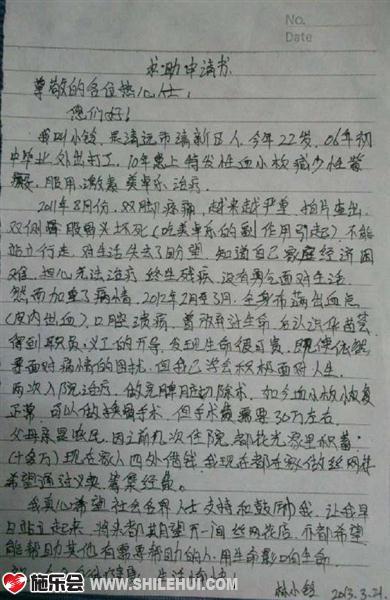 No.
Date
求助申请书
尊敬的各位热心人士,
您们好!
我叫小铃,是清远市清新区人,今年22岁,06年初
中毕业外出打工,10年患上特发性血小板减少性紫
癜,服用激素美卓乐治疗.
2011年8月份,双脚疼痛,越来越严重,拍片查出,
双侧股骨头坏死(吃美卓乐的副作用引起),不能
站立行走,对生活失去了盼望,知道自己家庭经济困
难,担心无法治疗,终生残疾,没有勇气面对生活
然而加重了病情,2012年2月至3月,全身布满出血点
(皮内出血),口腔溃疡,曾放弃过生命,后认识
得到职员,义工的开导,发现生命很可贵,既使依然
要面对病情的困扰,但我已学会积极面对人生.
两次入院治疗,做完脾脏切除术,如今血小板恢复
正常,可以做换髋手术,但手术费需要30万左右
父母亲是农民,因之前几次住院,都花光家里积蓄
(十多万)现在家人四处借钱,我现在都在家做丝网花
希望通过义卖筹集经费.
我真心希望社会各界人士支持和鼓励我,让我早
日站立起来,将来都期望开一间丝网花店,亦都希望
能帮助其他有需要帮助的人,用生命影响生命
林小铃 2013.3.21
施乐会 WWW.SHILEHUI.COM